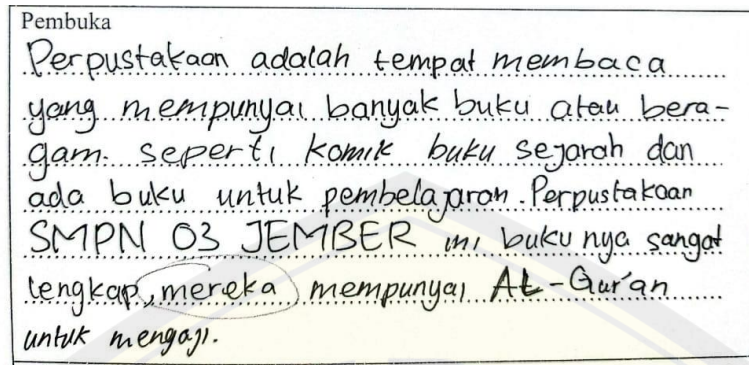 Pembuka
Perpustakaan adalah tempat membaca
yang mempunyai banyak buku atau bera-
gam. seperti komik buku sejarah dan
ada buku untuk pembelajaran. Perpustakaan
SMPN 03 JEMBER ini buku nya sangat
lengkap, mereka mempunyai Al-Qur'an
untuk mengaji.